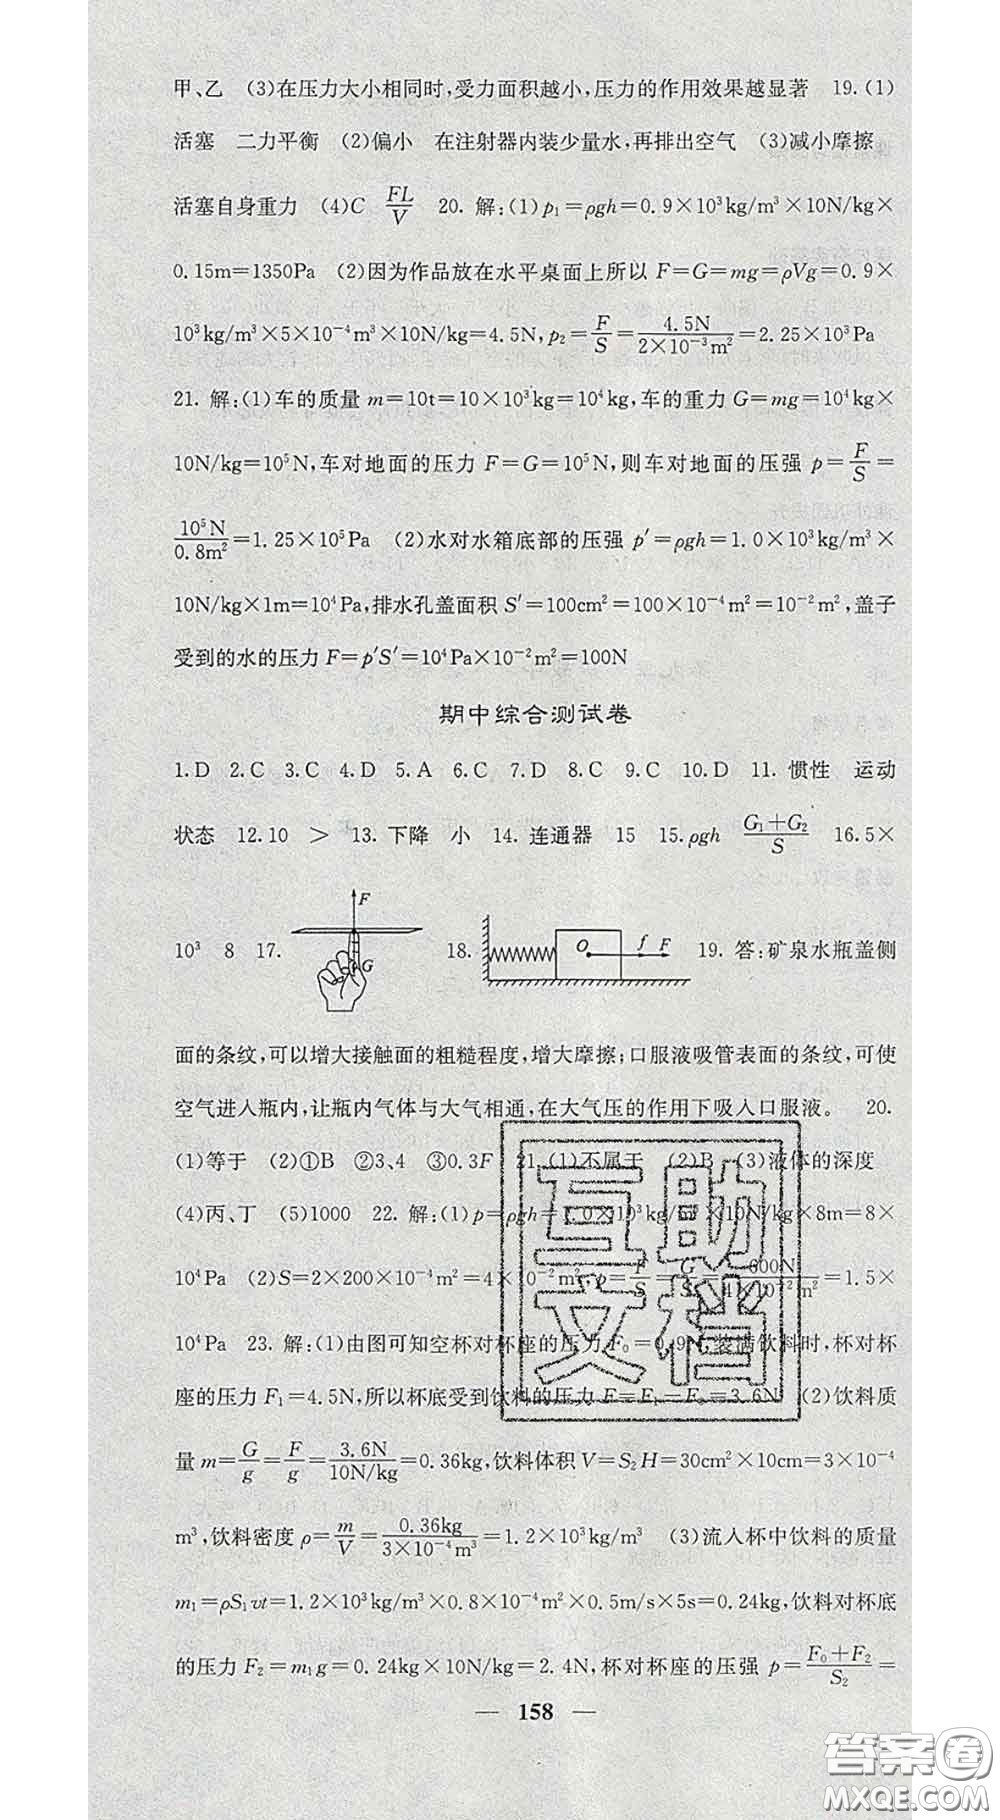 甲、乙　(3)在压力大小相同时,受力面积越小,压力的作用效果越显著　19.(1)
活塞　二力平衡　(2)偏小　在注射器内装少量水,再排出空气　(3)减小摩擦
活塞自身重力　(4)C　FL/V　20. 解:(1)p₁=ρgh=0.9×10³kg/m³×10N/kg×
0.15m=1350Pa　(2)因为作品放在水平桌面上所以 F=G=mg=ρVg=0.9×
10³kg/m³×5×10⁻⁴m³×10N/kg=4.5N,p₂=F/S=4.5N/2×10⁻³m²=2.25×10³Pa
21. 解:(1)车的质量 m=10t=10×10³kg=10⁴kg,车的重力 G=mg=10⁴kg×
10N/kg=10⁵N,车对地面的压力 F=G=10⁵N,则车对地面的压强 p=F/S=
10⁵N/0.8m²=1.25×10⁵Pa　(2)水对水箱底部的压强 p′=ρgh=1.0×10³kg/m³×
10N/kg×1m=10⁴Pa,排水孔盖面积 S′=100cm²=100×10⁻⁴m²=10⁻²m²,盖子
受到的水的压力 F=p′S′=10⁴Pa×10⁻²m²=100N
期中综合测试卷
1.D　2.C　3.C　4.D　5.A　6.C　7.D　8.C　9.C　10.D　11. 惯性　运动
状态　12.10　>　13. 下降　小　14. 连通器　15　15.ρgh　G₁+G₂/S　16.5×
10³　8　17.　F　G　18.　O　f　F　19. 答:矿泉水瓶盖侧
面的条纹,可以增大接触面的粗糙程度,增大摩擦;口服液吸管表面的条纹,可使
空气进入瓶内,让瓶内气体与大气相通,在大气压的作用下吸入口服液。　20.
(1)等于　(2)①B　②3、4　③0.3F　21.(1)不属于　(2)B　(3)液体的深度
(4)丙、丁　(5)1000　22. 解:(1)p=ρgh=1.0×10³kg/m³×10N/kg×8m=8×
10⁴Pa　(2)S=2×200×10⁻⁴m²=4×10⁻²m²,p=F/S=G/S=600N/4×10⁻²m²=1.5×
10⁴Pa　23. 解:(1)由图可知空杯对杯座的压力 F₀=0.9N,装满饮料时,杯对杯
座的压力 F₁=4.5N,所以杯底受到饮料的压力 F=F₁-F₀=3.6N　(2)饮料质
量 m=G/g=F/g=3.6N/10N/kg=0.36kg,饮料体积 V=S₂H=30cm²×10cm=3×10⁻⁴
m³,饮料密度 ρ=m/V=0.36kg/3×10⁻⁴m³=1.2×10³kg/m³　(3)流入杯中饮料的质量
m₁=ρS₁vt=1.2×10³kg/m³×0.8×10⁻⁴m²×0.5m/s×5s=0.24kg,饮料对杯底
的压力 F₂=m₁g=0.24kg×10N/kg=2.4N,杯对杯座的压强 p=F₀+F₂/S₂=
— 158 —
互助
文档
答案圈
MXQE.COM